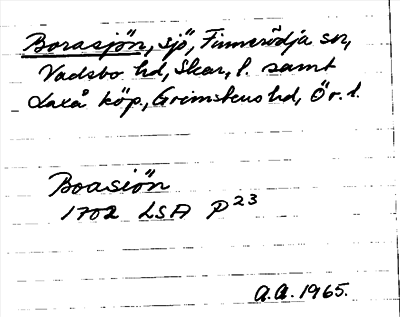 Borasjön, sjö, Finnerödja sn,
Vadsbo hd, Skar. l. samt
Laxå köp., Grimstens hd, Ör. l.
Boasiön
1702 LSA P23
A.A. 1965.